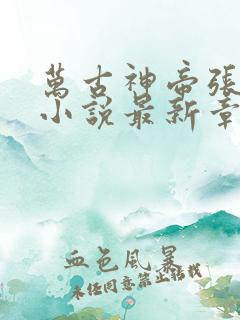 萬古神帝張
小說最新章
血色風暴
未經同意禁止轉載